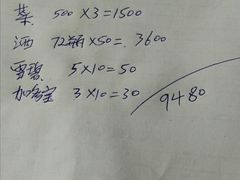 菜 500×3=1500
酒 72瓶×50=3600
雪碧 5×10=50
加多宝 3×10=30
9480